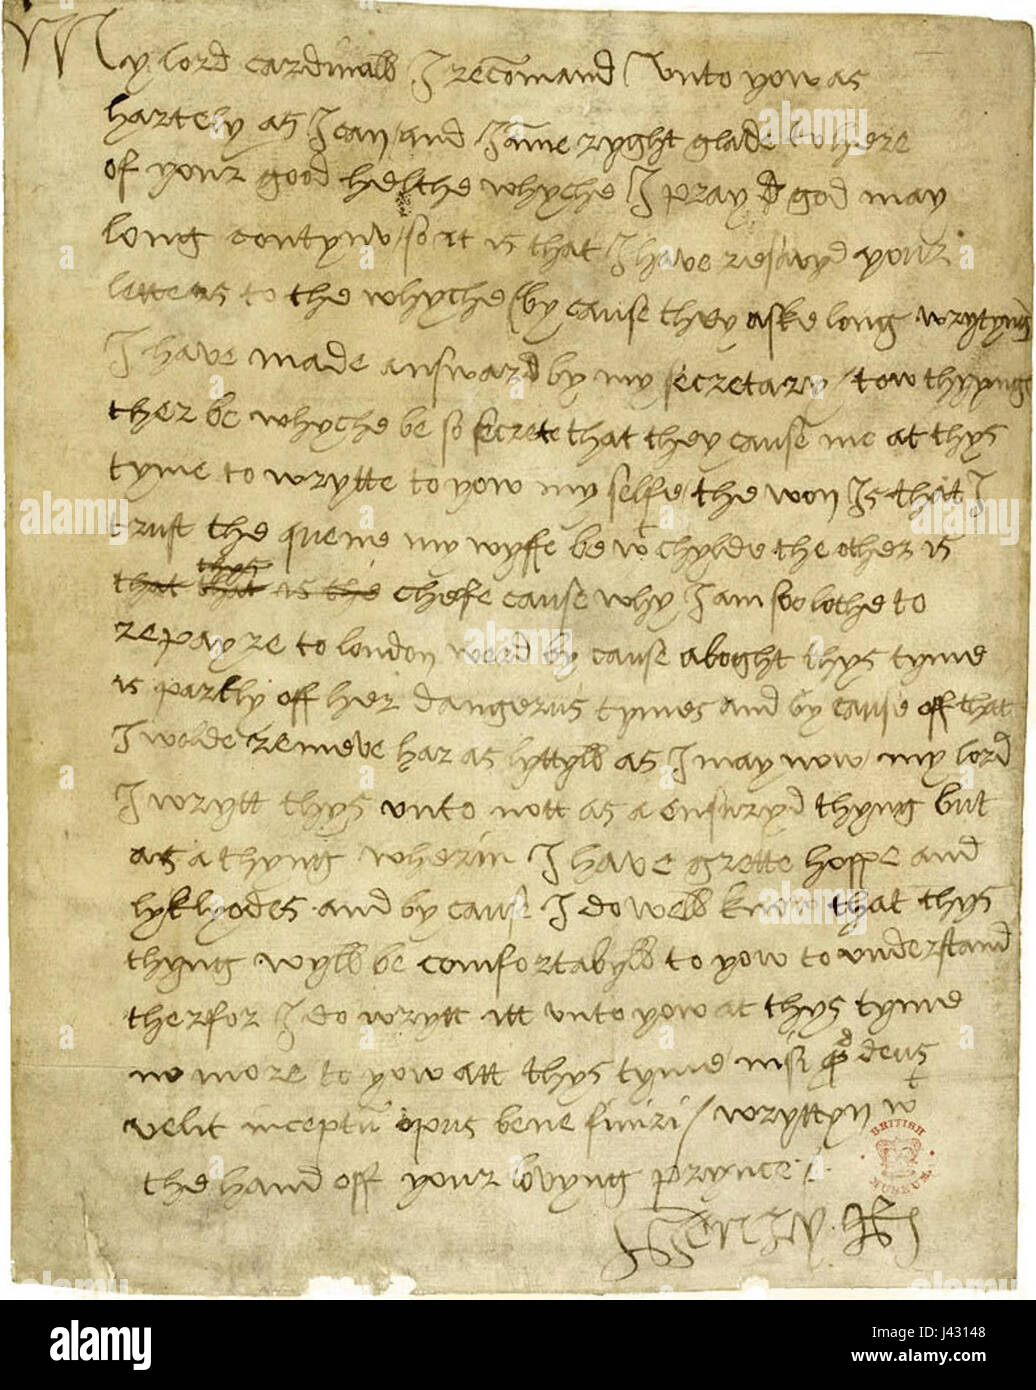 My lord cardinall I recomand unto yow as
hartely as I can / and I ame ryght glade to here
of your good helthe whyche I pray god may
long contynu / so it is that I have resavyd your
letters to the whyche (by cause they aske long wrytyng)
I have made answard by my secretary / tow thyngs
ther be whyche be so secrete that they cause me at thys
tyme to wrytte to yow my selfe / the won is that I
trust the quene my wyffe be wt chylde the other is
thys
that that is the chefe cause why I am so lothe to
repayre to london werd by cause aboght thys tyme
is partly off her dangerus tymes and by cause off that
I wolde remeve har as lyttyll as I may now / my lord
I wrytt thys unto nott as a ensuryd thyng but
as a thyng wherin I have grette hoppe and
lyklyodes and by cause I do well know that thys
thyng wyll be comfortabyll to yow to understand
therfor I do wrytt itt unto yow at thys tyme
no more to yow att thys tyme / nisi qd deus
velit inceptu opus bene finiri / wryttyn wt
the hand off your lovyng prynce
Henry R
BRITISH MUSEUM
alamy
Image ID: J43148
www.alamy.com